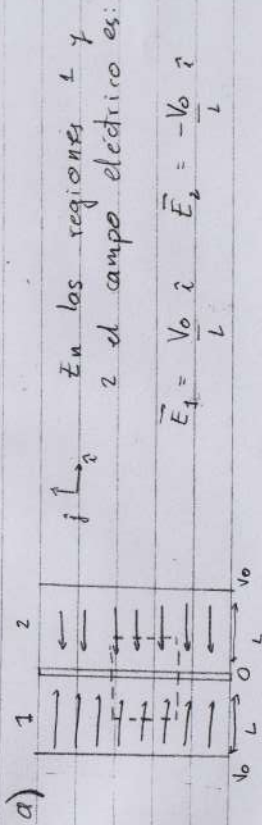 a)
1 2
V₀ L 0 L V₀
ĵ î
En las regiones 1 y
2 el campo eléctrico es:
E⃗₁ = V₀/L î E⃗₂ = -V₀/L î